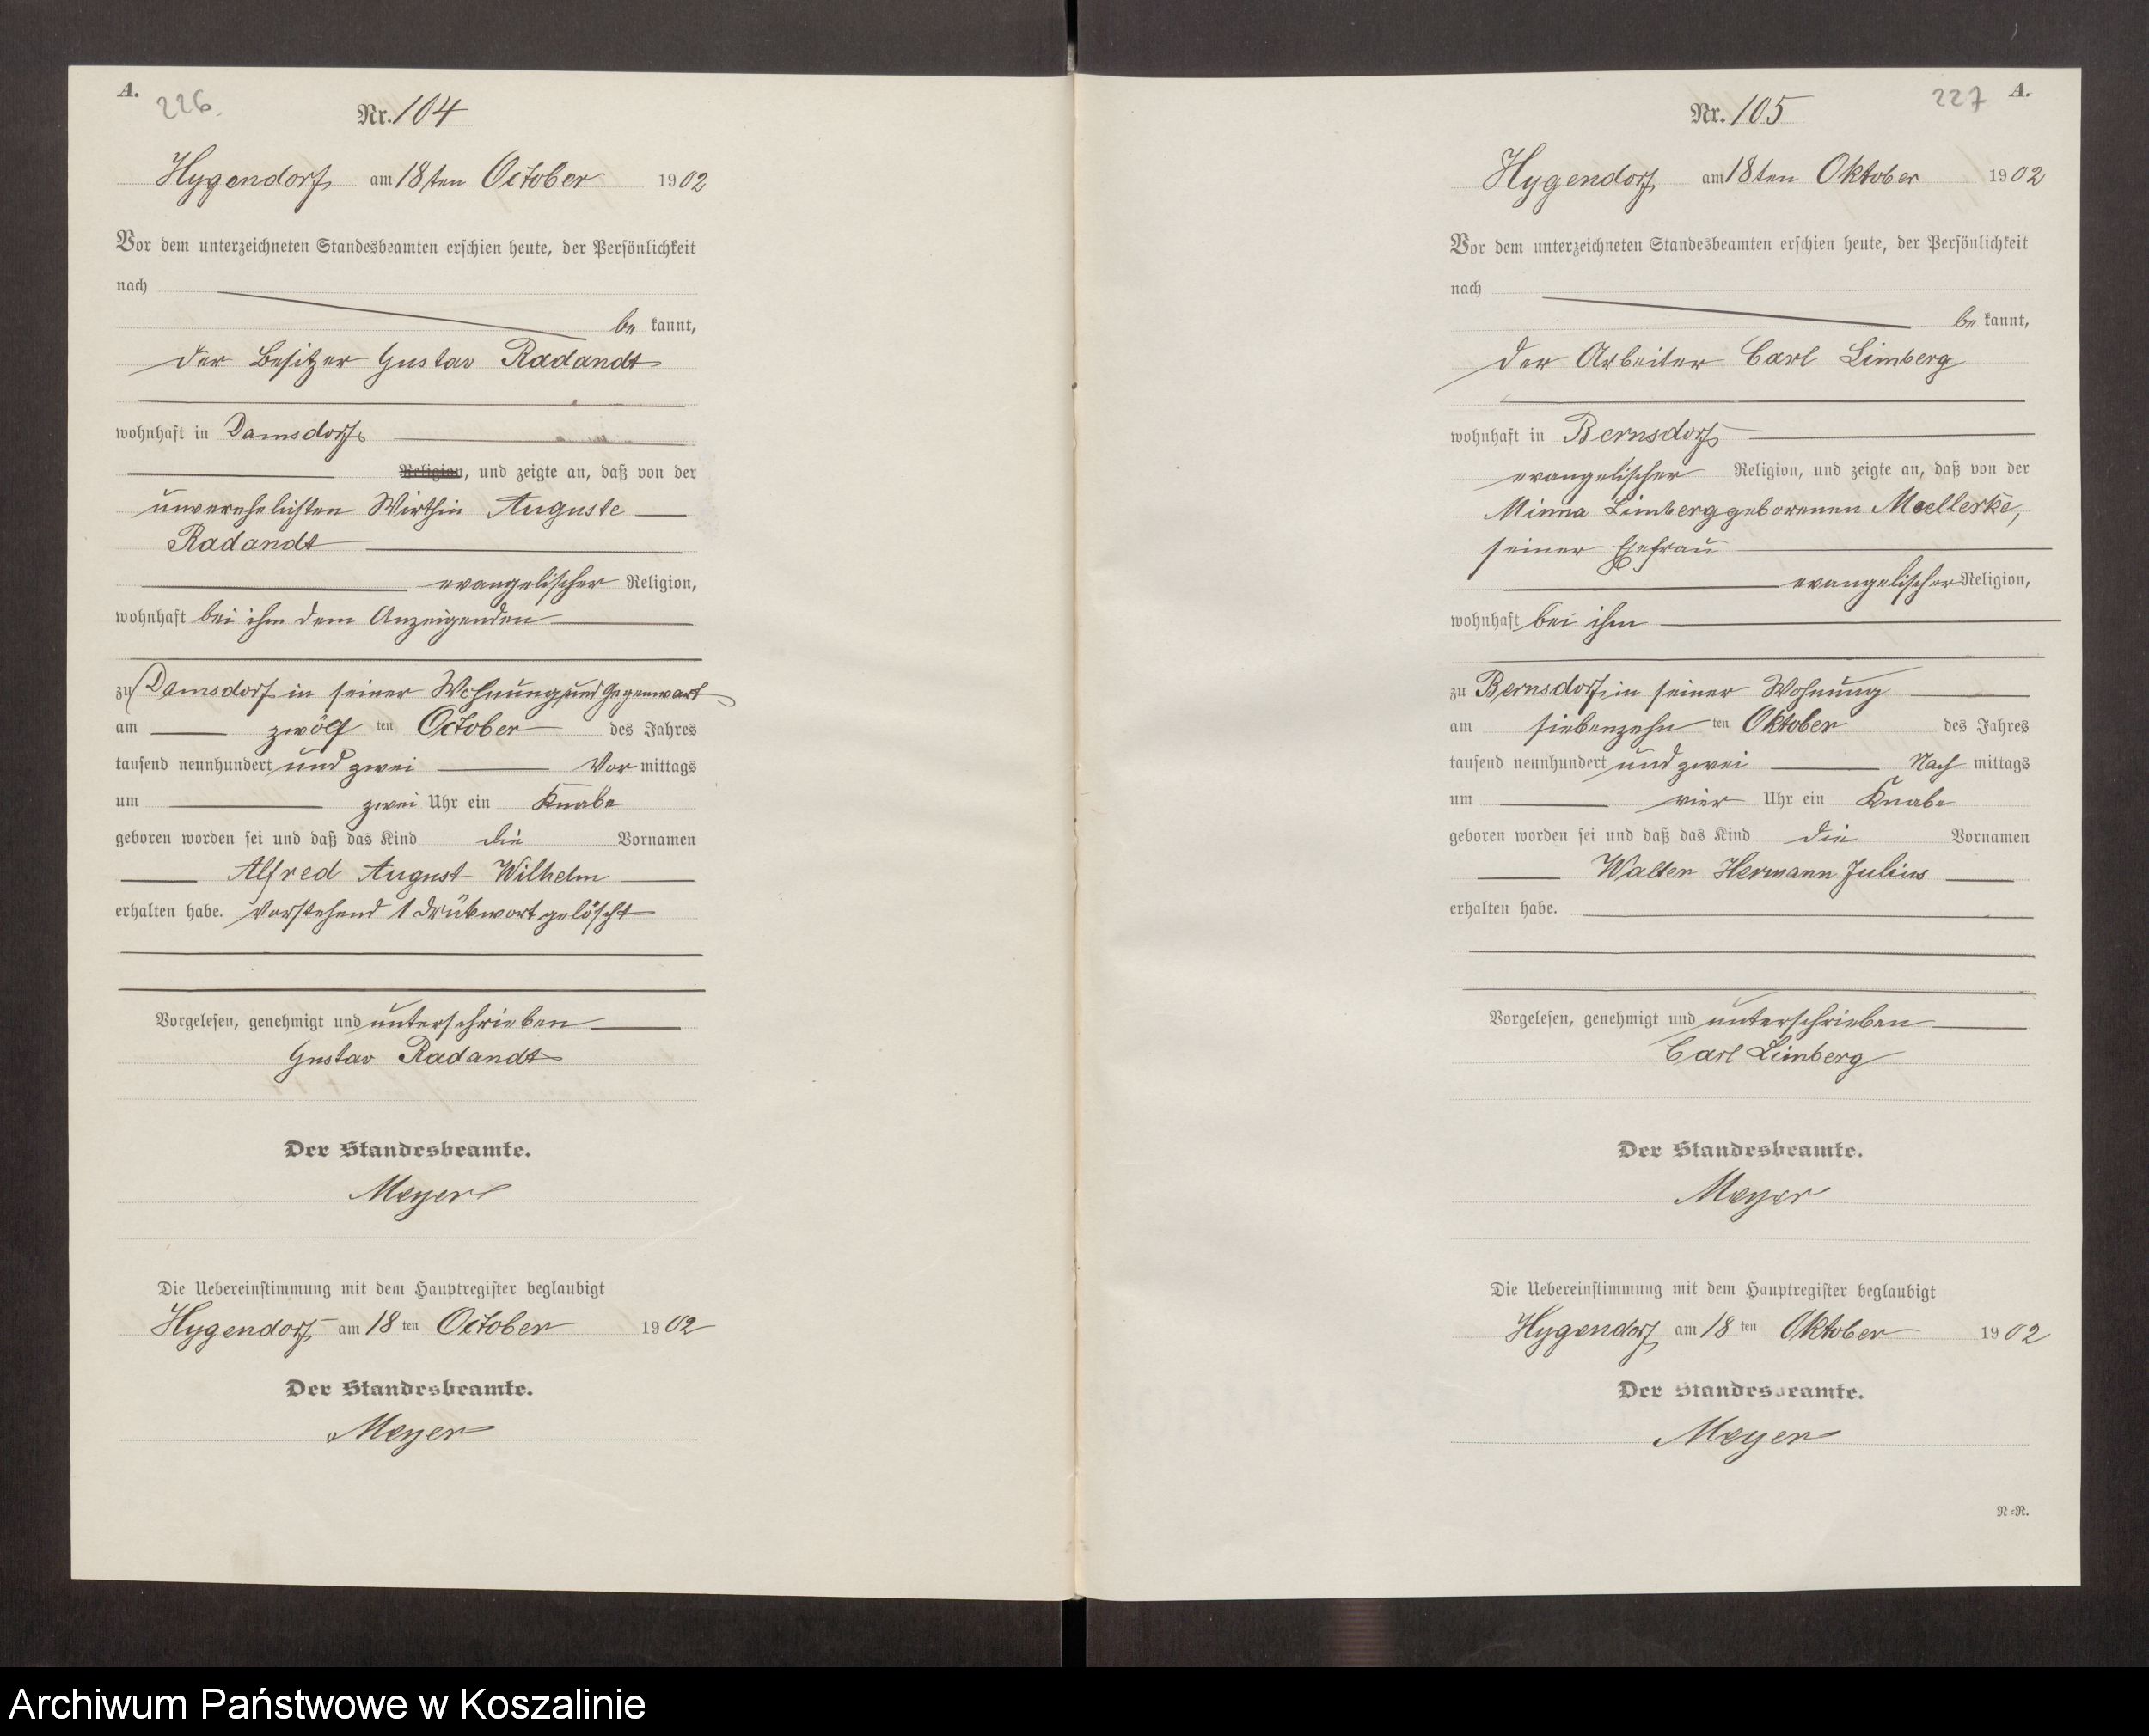 A.
226.
Nr. 104
Hygendorf am 18ten October 1902
Vor dem unterzeichneten Standesbeamten erschien heute, der Persönlichkeit
nach
be kannt,
der Besitzer Gustav Radandt
wohnhaft in Damsdorf
Religion, und zeigte an, daß von der
unverehelichten Wirthin Auguste
Radandt
evangelischer Religion,
wohnhaft bei ihm dem Anzeigenden
zu Damsdorf in seiner Wohnung und Gegenwart
am zwölf ten October des Jahres
tausend neunhundert und zwei Vor mittags
um zwei Uhr ein Knabe
geboren worden sei und daß das Kind die Vornamen
Alfred August Wilhelm
erhalten habe. Vorstehend 1 Drukwort gelöscht
Vorgelesen, genehmigt und unterschrieben
Gustav Radandt
Der Standesbeamte.
Meyer
Die Uebereinstimmung mit dem Hauptregister beglaubigt
Hygendorf am 18 ten October 1902
Der Standesbeamte.
Meyer
227 A.
Nr. 105
Hygendorf am 18ten Oktober 1902
Vor dem unterzeichneten Standesbeamten erschien heute, der Persönlichkeit
nach
be kannt,
der Arbeiter Carl Limberg
wohnhaft in Bernsdorf
evangelischer Religion, und zeigte an, daß von der
Minna Limberg geborenen Moellerke,
seiner Ehefrau
evangelischer Religion,
wohnhaft bei ihm
zu Bernsdorf in seiner Wohnung
am siebenzehn ten Oktober des Jahres
tausend neunhundert und zwei Nach mittags
um vier Uhr ein Knabe
geboren worden sei und daß das Kind die Vornamen
Walter Hermann Julius
erhalten habe.
Vorgelesen, genehmigt und unterschrieben
Carl Limberg
Der Standesbeamte.
Meyer
Die Uebereinstimmung mit dem Hauptregister beglaubigt
Hygendorf am 18 ten Oktober 1902
Der Standesbeamte.
Meyer
N=R.
Archiwum Państwowe w Koszalinie